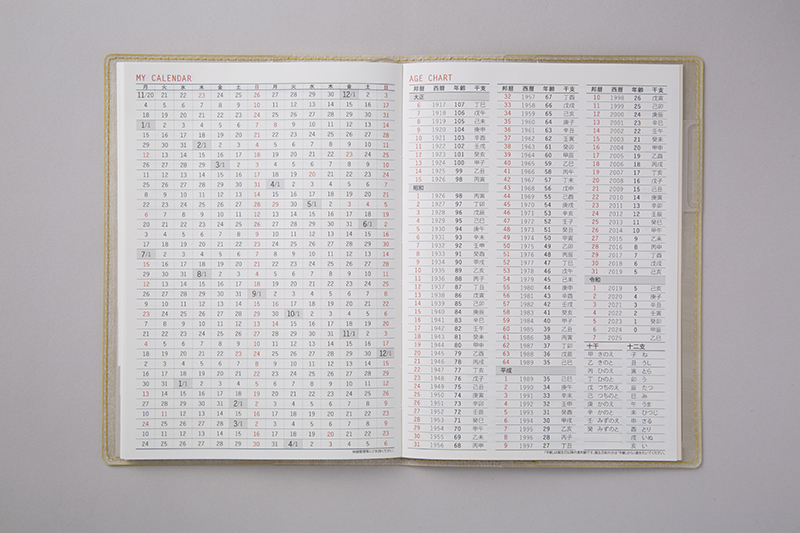 MY CALENDAR
月 火 水 木 金 土 日 月 火 水 木 金 土 日
11/20 21 22 23 24 25 26 27 28 29 30 12/1 2 3
4 5 6 7 8 9 10 11 12 13 14 15 16 17
18 19 20 21 22 23 24 25 26 27 28 29 30 31
1/1 2 3 4 5 6 7 8 9 10 11 12 13 14
15 16 17 18 19 20 21 22 23 24 25 26 27 28
29 30 31 2/1 2 3 4 5 6 7 8 9 10 11
12 13 14 15 16 17 18 19 20 21 22 23 24 25
26 27 28 29 3/1 2 3 4 5 6 7 8 9 10
11 12 13 14 15 16 17 18 19 20 21 22 23 24
25 26 27 28 29 30 31 4/1 2 3 4 5 6 7
8 9 10 11 12 13 14 15 16 17 18 19 20 21
22 23 24 25 26 27 28 29 30 5/1 2 3 4 5
6 7 8 9 10 11 12 13 14 15 16 17 18 19
20 21 22 23 24 25 26 27 28 29 30 31 6/1 2
3 4 5 6 7 8 9 10 11 12 13 14 15 16
17 18 19 20 21 22 23 24 25 26 27 28 29 30
7/1 2 3 4 5 6 7 8 9 10 11 12 13 14
15 16 17 18 19 20 21 22 23 24 25 26 27 28
29 30 31 8/1 2 3 4 5 6 7 8 9 10 11
12 13 14 15 16 17 18 19 20 21 22 23 24 25
26 27 28 29 30 31 9/1 2 3 4 5 6 7 8
9 10 11 12 13 14 15 16 17 18 19 20 21 22
23 24 25 26 27 28 29 30 10/1 2 3 4 5 6
7 8 9 10 11 12 13 14 15 16 17 18 19 20
21 22 23 24 25 26 27 28 29 30 31 11/1 2 3
4 5 6 7 8 9 10 11 12 13 14 15 16 17
18 19 20 21 22 23 24 25 26 27 28 29 30 12/1
2 3 4 5 6 7 8 9 10 11 12 13 14 15
16 17 18 19 20 21 22 23 24 25 26 27 28 29
30 31 1/1 2 3 4 5 6 7 8 9 10 11 12
13 14 15 16 17 18 19 20 21 22 23 24 25 26
27 28 29 30 31 2/1 2 3 4 5 6 7 8 9
10 11 12 13 14 15 16 17 18 19 20 21 22 23
24 25 26 27 28 3/1 2 3 4 5 6 7 8 9
10 11 12 13 14 15 16 17 18 19 20 21 22 23
24 25 26 27 28 29 30 31 4/1 2 3 4 5 6
AGE CHART
邦暦 西暦 年齢 干支
大正
6 1917 107 丁巳
7 1918 106 戊午
8 1919 105 己未
9 1920 104 庚申
10 1921 103 辛酉
11 1922 102 壬戌
12 1923 101 癸亥
13 1924 100 甲子
14 1925 99 乙丑
15 1926 98 丙寅
昭和
1 1926 98 丙寅
2 1927 97 丁卯
3 1928 96 戊辰
4 1929 95 己巳
5 1930 94 庚午
6 1931 93 辛未
7 1932 92 壬申
8 1933 91 癸酉
9 1934 90 甲戌
10 1935 89 乙亥
11 1936 88 丙子
12 1937 87 丁丑
13 1938 86 戊寅
14 1939 85 己卯
15 1940 84 庚辰
16 1941 83 辛巳
17 1942 82 壬午
18 1943 81 癸未
19 1944 80 甲申
20 1945 79 乙酉
21 1946 78 丙戌
22 1947 77 丁亥
23 1948 76 戊子
24 1949 75 己丑
25 1950 74 庚寅
26 1951 73 辛卯
27 1952 72 壬辰
28 1953 71 癸巳
29 1954 70 甲午
30 1955 69 乙未
31 1956 68 丙申
32 1957 67 丁酉
33 1958 66 戊戌
34 1959 65 己亥
35 1960 64 庚子
36 1961 63 辛丑
37 1962 62 壬寅
38 1963 61 癸卯
39 1964 60 甲辰
40 1965 59 乙巳
41 1966 58 丙午
42 1967 57 丁未
43 1968 56 戊申
44 1969 55 己酉
45 1970 54 庚戌
46 1971 53 辛亥
47 1972 52 壬子
48 1973 51 癸丑
49 1974 50 甲寅
50 1975 49 乙卯
51 1976 48 丙辰
52 1977 47 丁巳
53 1978 46 戊午
54 1979 45 己未
55 1980 44 庚申
56 1981 43 辛酉
57 1982 42 壬戌
58 1983 41 癸亥
59 1984 40 甲子
60 1985 39 乙丑
61 1986 38 丙寅
62 1987 37 丁卯
63 1988 36 戊辰
64 1989 35 己巳
平成
1 1989 35 己巳
2 1990 34 庚午
3 1991 33 辛未
4 1992 32 壬申
5 1993 31 癸酉
6 1994 30 甲戌
7 1995 29 乙亥
8 1996 28 丙子
9 1997 27 丁丑
邦暦 西暦 年齢 干支
10 1998 26 戊寅
11 1999 25 己卯
12 2000 24 庚辰
13 2001 23 辛巳
14 2002 22 壬午
15 2003 21 癸未
16 2004 20 甲申
17 2005 19 乙酉
18 2006 18 丙戌
19 2007 17 丁亥
20 2008 16 戊子
21 2009 15 己丑
22 2010 14 庚寅
23 2011 13 辛卯
24 2012 12 壬辰
25 2013 11 癸巳
26 2014 10 甲午
27 2015 9 乙未
28 2016 8 丙申
29 2017 7 丁酉
30 2018 6 戊戌
31 2019 5 己亥
令和
1 2019 5 己亥
2 2020 4 庚子
3 2021 3 辛丑
4 2022 2 壬寅
5 2023 1 癸卯
6 2024 0 甲辰
7 2025 乙巳
十干 十二支
甲 きのえ 子 ね
乙 きのと 丑 うし
丙 ひのえ 寅 とら
丁 ひのと 卯 う
戊 つちのえ 辰 たつ
己 つちのと 巳 み
庚 かのえ 午 うま
辛 かのと 未 ひつじ
壬 みずのえ 申 さる
癸 みずのと 酉 とり
戌 いぬ
亥 い